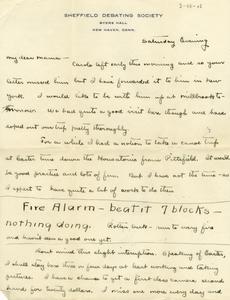 SHEFFIELD DEBATING SOCIETY
BYERS HALL
NEW HAVEN, CONN.
Saturday Evening
My dear Mama -
Carola left early this morning and so your
letter missed him but I have forwarded it to him in New
York. I would like to be with him up at Millbrook to-
morrow. We had quite a good visit here though and have
doped out our trip pretty thoroughly.
For a while I had a notion to take a canoe trip
at Easter time down the Housatonic from Pittsfield. It would
be good practice and lots of fun. But I have not the time - as
I expect to have quite a lot of work to do then
Fire Alarm - beat it 7 blocks -
nothing doing. Rotten luck - run to every fire
and haven't seen a good one yet.
Don't mind this slight interruption. Speaking of Easter,
I shall stay here two or four days at hard working and taking
pictures. I have a chance to get a first class camera, second
hand for twenty dollars. I miss one more every day and